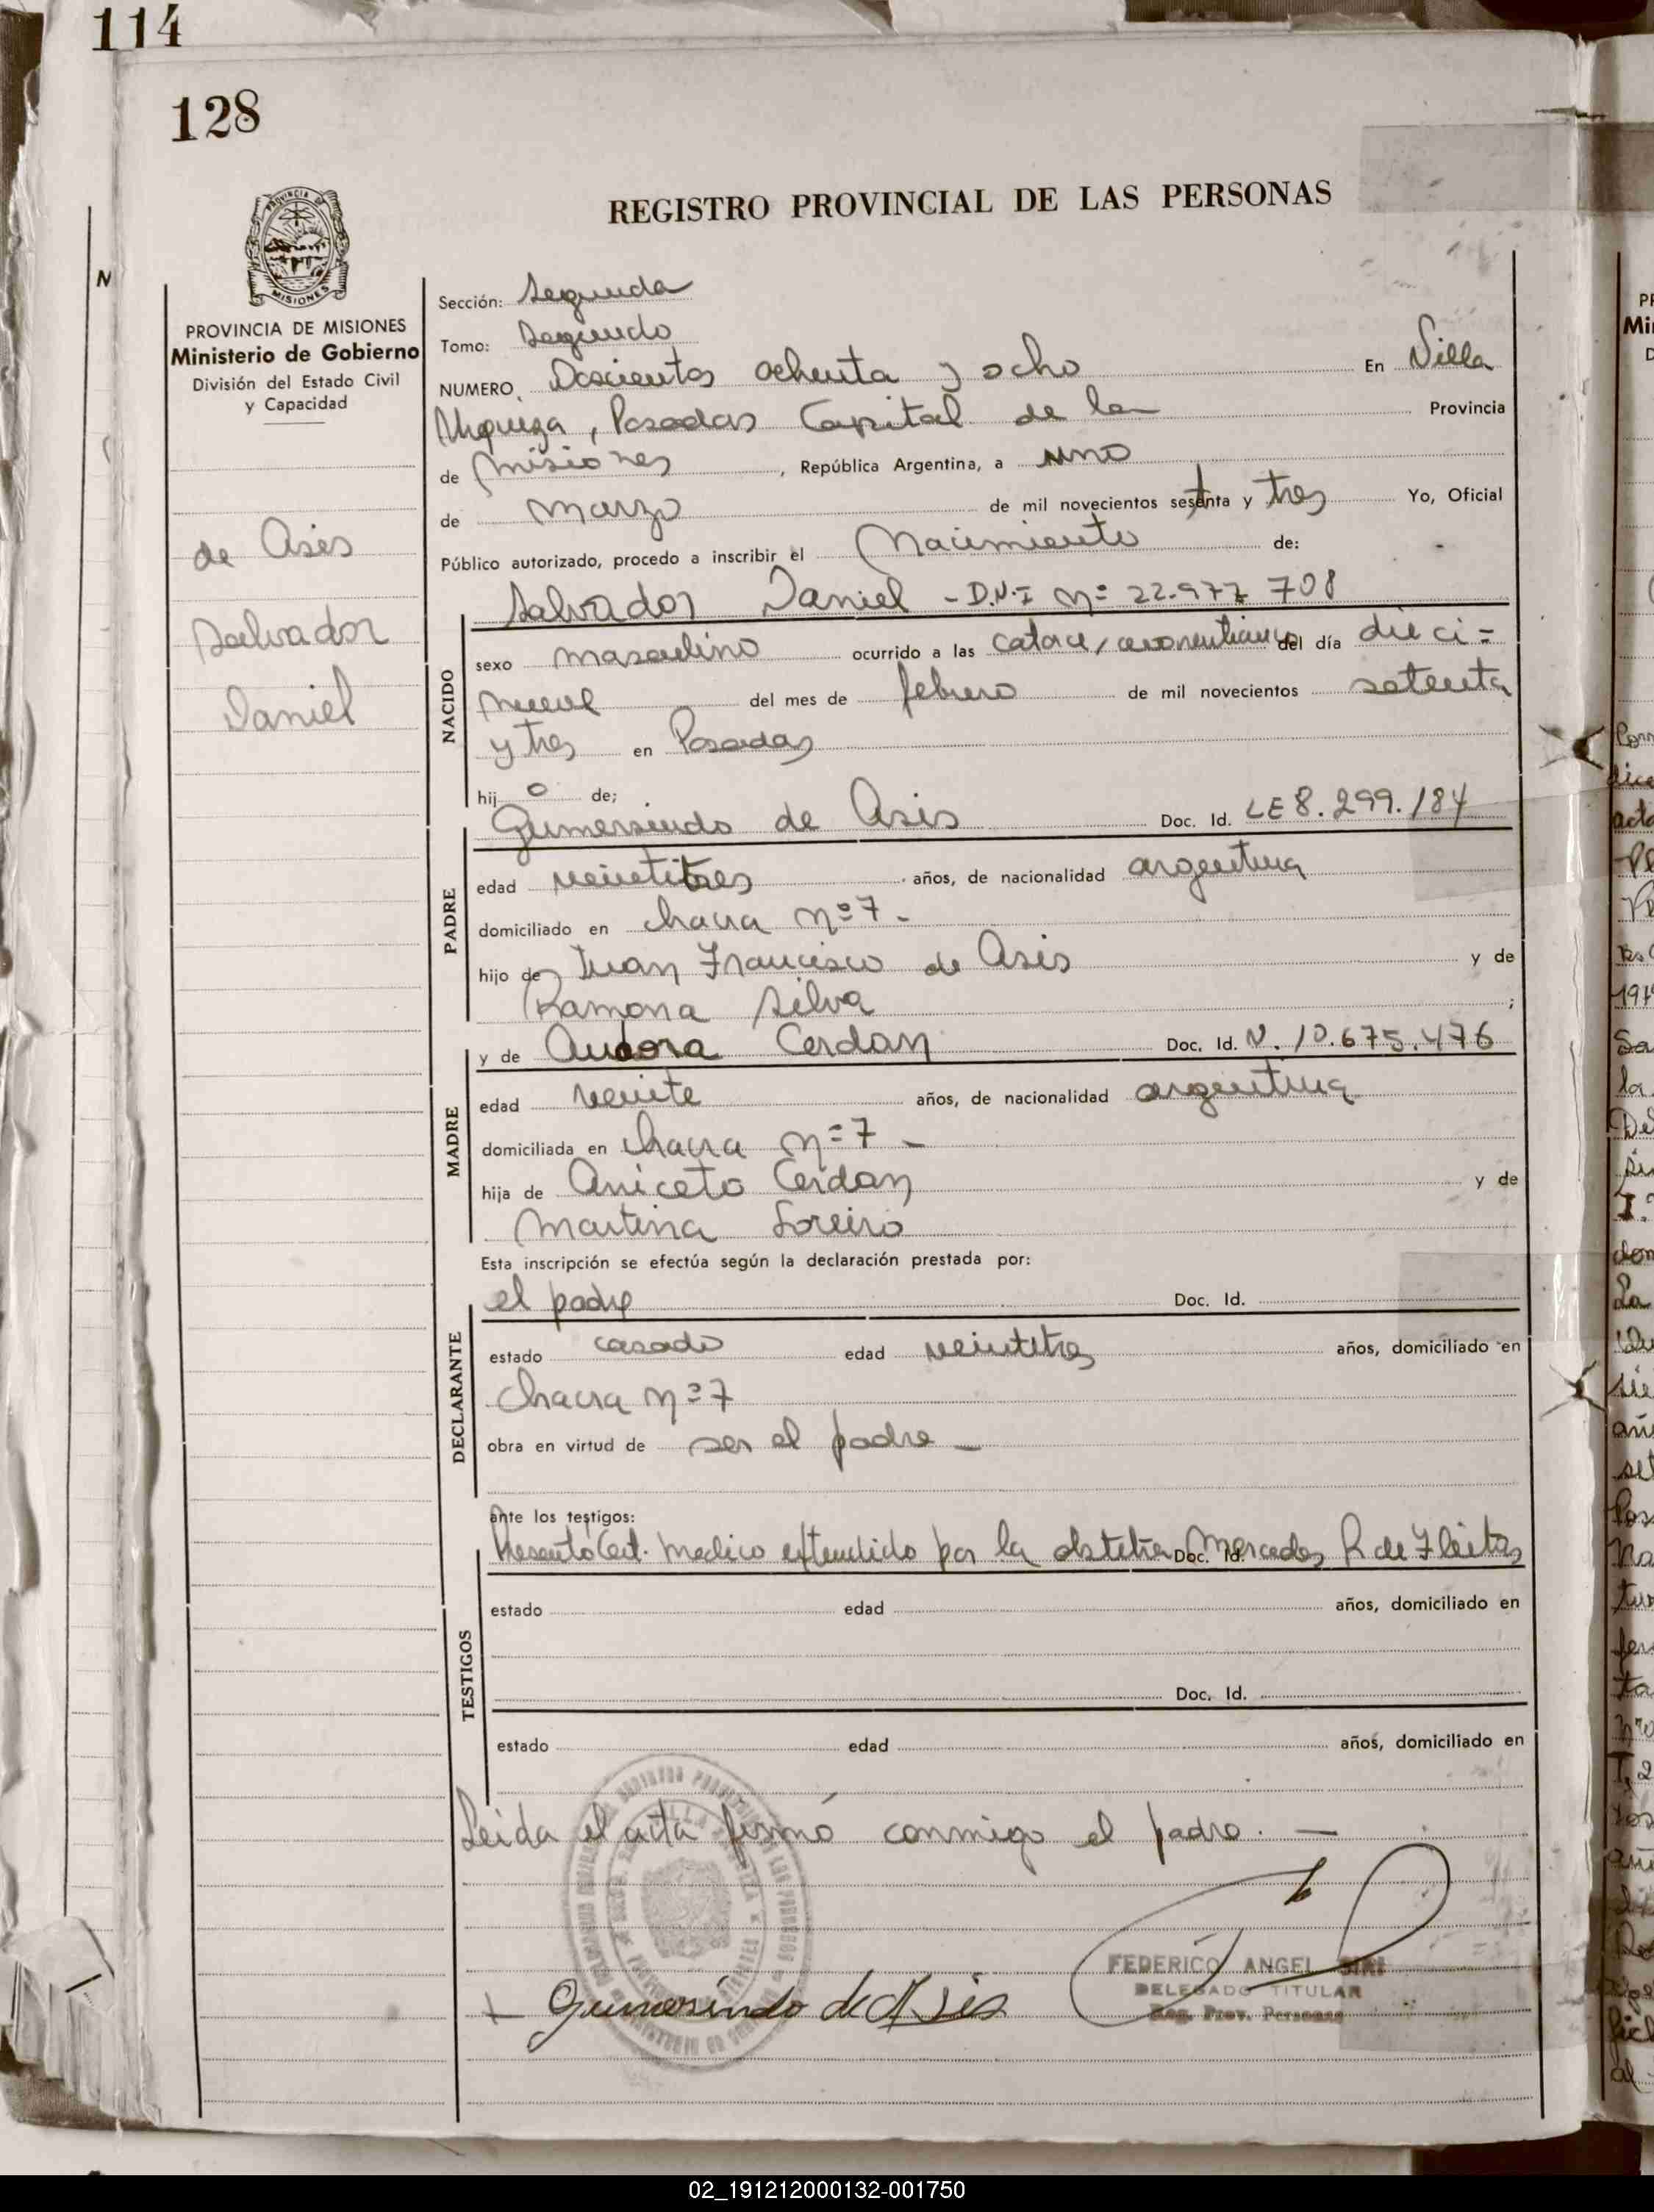 114
128
REGISTRO PROVINCIAL DE LAS PERSONAS
MISIONES
PROVINCIA DE MISIONES
Ministerio de Gobierno
División del Estado Civil
y Capacidad
de Asis
Salvador
Daniel
Sección: Segunda
Tomo: Segundo
NUMERO, Doscientos ochenta y ocho En Villa
Urquiza, Posadas Capital de la Provincia
de Misiones, República Argentina, a uno
de marzo de mil novecientos setenta y tres Yo, Oficial
Público autorizado, procedo a inscribir el Nacimiento de:
Salvador Daniel - D.N.I Nº 22.977 708
NACIDO
sexo masculino ocurrido a las catorce, del día dieci=
nueve del mes de febrero de mil novecientos setenta
y tres en Posadas
hijo de;
Gumersindo de Asis Doc. Id. LE 8.299.184
PADRE
edad veintitres años, de nacionalidad argentina
domiciliado en chacra nº 7 -
hijo de Juan Francisco de Asis y de
Ramona Silva ;
y de Aurora Cerdan Doc. Id. N. 10.675.476
MADRE
edad veinte años, de nacionalidad argentina
domiciliada en chacra nº 7 -
hija de Aniceto Cerdan y de
Martina Loreiro
Esta inscripción se efectúa según la declaración prestada por:
el padre Doc. Id.
DECLARANTE
estado casado edad veintitres años, domiciliado en
chacra nº 7
obra en virtud de ser el padre -
ante los testigos:
Presento Cert. Medico extendido por la obstetra Doc. Id. Mercedes R de Fleitas
TESTIGOS
estado edad años, domiciliado en
Doc. Id.
estado edad años, domiciliado en
Leida el acta firmó conmigo el padre. -
Gumersindo de Asis
FEDERICO ANGEL SIRI
DELEGADO TITULAR
Reg. Prov. Personas
02_191212000132-001750